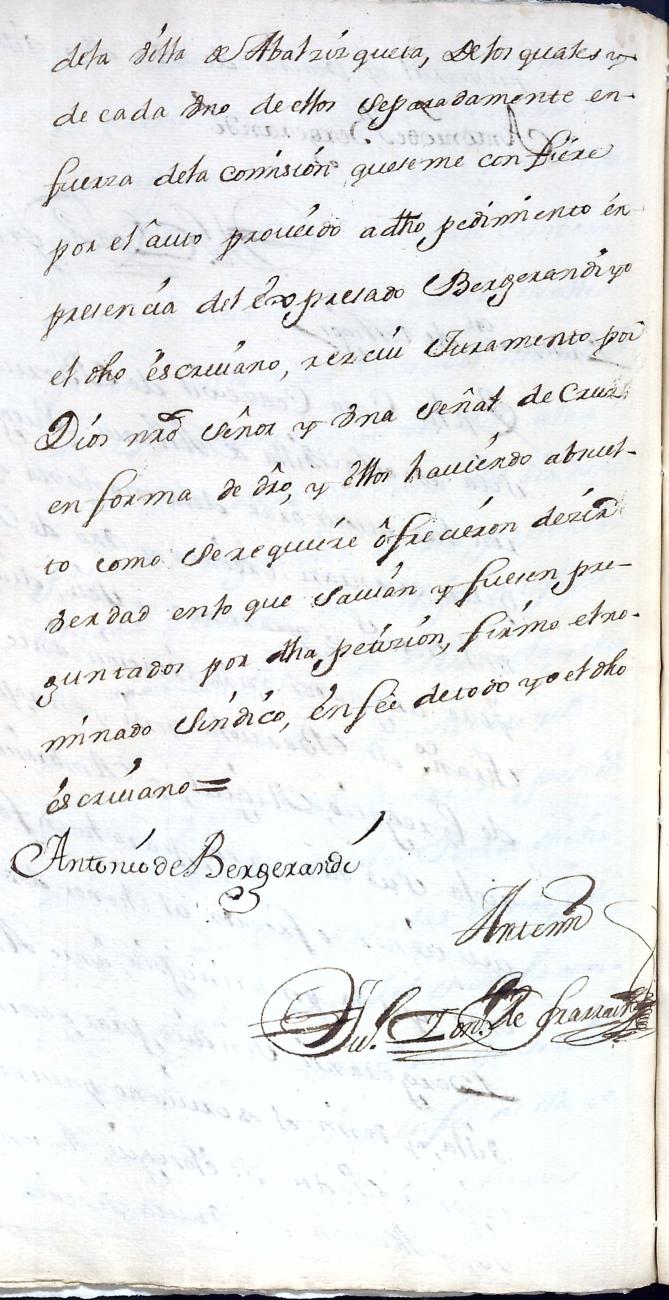 dela villa de Abalzizqueta, Delos quales y
de cada vno de ellos Separadamente en
fuerza dela comisión queseme con fiere
por el auto proveido a dho pedimiento en
presencia del expresado Bergerandi yo
el dho escriuano, rezciui Juramento por
Dios nrō Señor y vna Señal de Cruz
en forma de drō, y ellos haviendo absuel-
to como Serequiere ofrecieron dezir
verdad en lo que Savian y fuesen pre-
guntados por dha petizion, firmo el no-
minado Sindico, en feè de todo yo el dho
escriuano =
Antonio de Bergerandi
Antemi